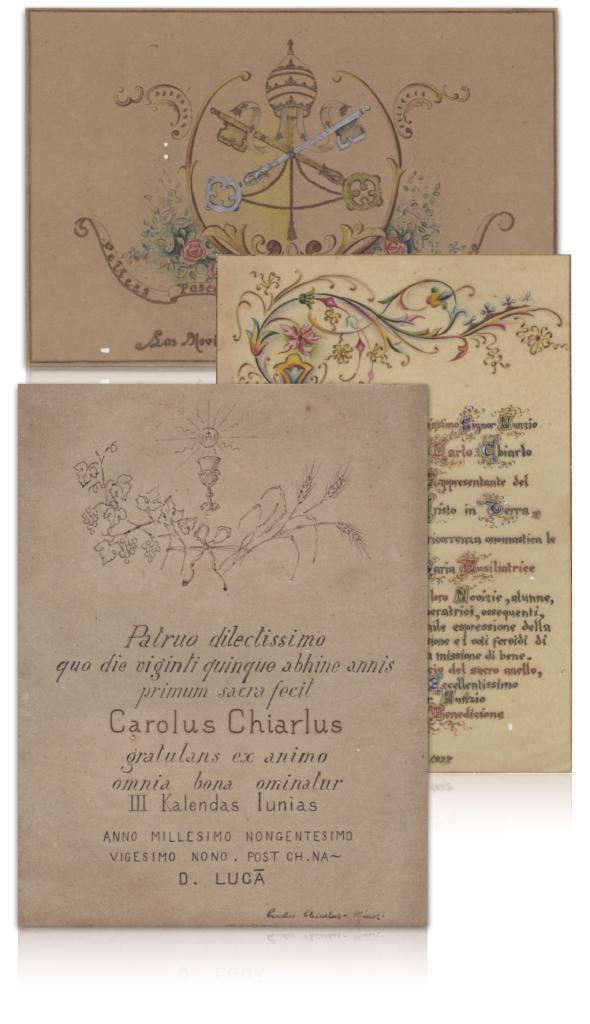 Felices Pasc
Las Novi
issimo Signor Nunzio
Carlo Chiarlo
appresentante del
risto in Terra.
ricorrenza onomastica le
aria Ausiliatrice
loro Novizie, alunne,
peratrici, ossequenti,
mile espressione della
zione e i voti fervidi di
a missione di bene.
cio del sacro anello,
Eccellentissimo
Nunzio
Benedizione
Patruo dilectissimo
quo die viginti quinque abhinc annis
primum sacra fecit
Carolus Chiarlus
gratulans ex animo
omnia bona ominatur
III Kalendas Iunias
ANNO MILLESIMO NONGENTESIMO
VIGESIMO NONO. POST CH.NA~
D. LUCĀ
Carolus Chiarlus - Minor-